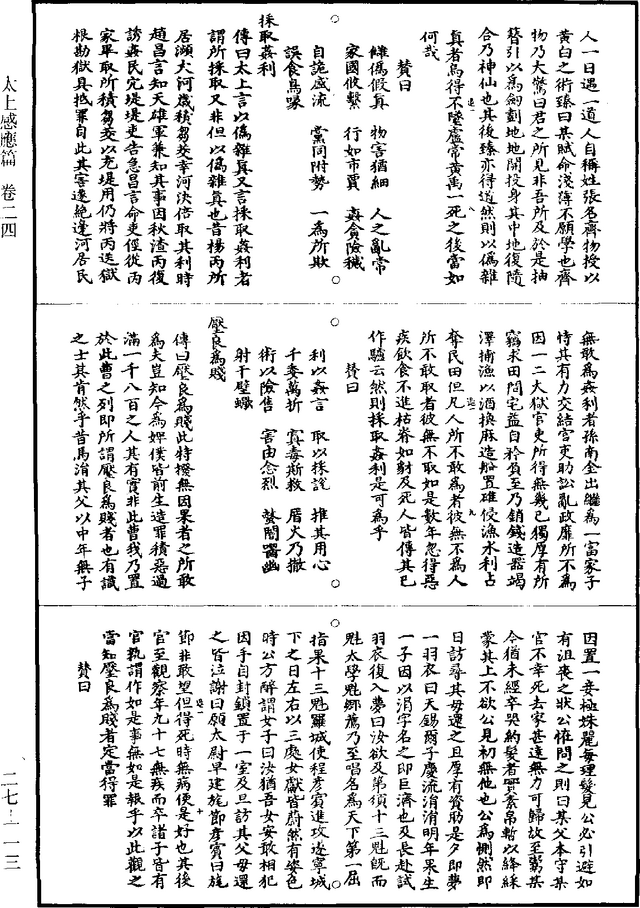 太上感應篇 卷二四
人一日遇一道人自稱姓張名齊物授以
黃白之術臻曰某賦命淺薄不願學也齊
物乃大驚曰君之所見非吾所及於是抽
簪引以為劍劃地地開投身其中地復隨
合乃神仙也其後臻亦得道然則以偽雜
真者烏得不墜虛常黃禹一死之後當如
何哉
贊曰
雜偽假真 物害猶細 人之亂常
家國攸繫 行如市賈 姦貪險穢
自詭盛流 黨同附勢 一為所欺
誤食烏喙
採取姦利
傳曰太上言以偽雜真又言採取姦利者
謂所採取又非但以偽雜真也昔楊丙所
居瀕大河歲積芻茭幸河決倍取其利時
趙昌言知天雄軍兼知其事因秋潦丙復
誘姦民穴堤堤吏告急昌言命吏徑從丙
家畢取所積芻茭以充堤用仍將丙送獄
根勘獄具抵罪自此其害遂絕逢河居民
無敢為姦利者孫南金出繼為一富家子
恃其有力交結官吏助訟亂政靡所不為
因一二大獄官吏所得無幾己獨厚有所
竊求田問宅益自矜負至乃銷錢造器竭
澤捕漁以酒換麻造船置碓侵漁水利占
奪民田但凡人所不敢為者彼無不為人
所不敢取者彼無不取如是數年忽得惡
疾飲食不進枯瘠如豺及死人皆傳其已
作驢云然則採取姦利是可為乎
贊曰
利以姦言 取以採說 推其用心
千委萬折 寘毒斯救 厝火乃撤
術以險售 害由忿烈 螫閽噐幽
射干壁蝎
壓良為賤
傳曰壓良為賤此特撥無因果者之所敢
為夫豈知今為婢僕皆前生造罪積惡過
滿一千八百之人其有實非此曹我乃置
於此曹之列即所謂壓良為賤者也有識
之士其肯然乎昔馬涓其父以中年無子
因置一妾極姝麗每理髮見公必引避如
有沮喪之狀公惟問之則曰某父本守某
官不幸死去家甚遠無力可歸故至鬻某
今猶未經卒哭約髮者實素帛暫以絳綵
蒙其上不欲公見初無他也公為惻然即
日訪尋其母還之且厚有資助是夕即夢
一羽衣曰天錫爾子慶流涓涓明年果生
一子因以涓字名之即巨濟也及長赴試
羽衣復入夢曰汝欲及第須十三魁旣而
魁太學魁鄉薦乃至唱名為天下第一屈
指果十三魁羅城使程彥賓進攻遂寧城
下之日左右以三處女獻皆蔚然有姿色
時公方醉謂女子曰汝猶吾女安敢相犯
因手自封鎖置于一室及旦訪其父母還
之皆泣謝曰願太尉早建旄節彥賓曰旄
節非敢望但得死時無病便是好也其後
官至觀察年九十七無疾而卒諸子皆有
官孰謂作如是事無如是報乎以此觀之
當知壓良為賤者定當得罪
贊曰
二七-一一三